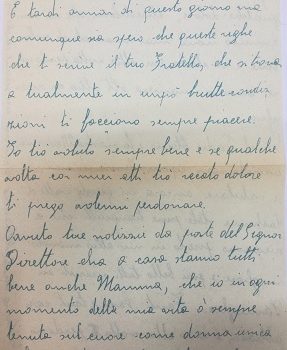 E tardi ormai di questo giorno ma
comunque sia spero che queste righe
che ti scrive il tuo Fratello, che si trova
a tualmente in un pò brutte condi
zioni ti facciano sempre piacere.
Io tiò voluto sempre bene e se qualche
volta coi miei atti tiò recato dolore
ti prego volermi perdonare.
Oavuto tue notizie da parte del Signor
Direttore che a casa stanno tutti
bene anche Mamma, che io in ogni
momento della mia vita ò sempre
tenuta sul cuore come donna unica